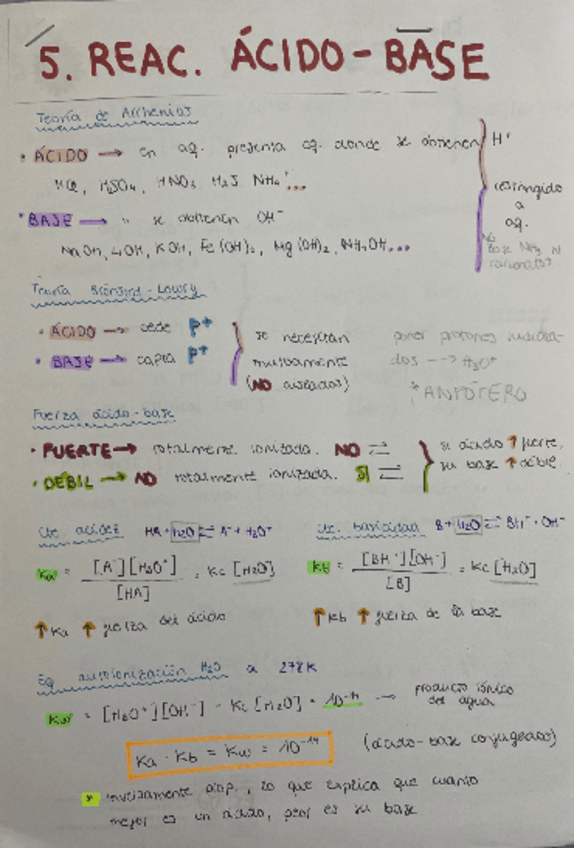 5. REAC. ÁCIDO-BASE
Teoría de Arrhenius
• ÁCIDO → en aq. presenta aq. donde se obtienen H⁺
HCl, H₂SO₄, HNO₃, H₂S, NH₄⁺...
• BASE → " se obtienen OH⁻
NaOH, LiOH, KOH, Fe(OH)₂, Mg(OH)₂, NH₄OH...
restringido
a
aq.
Base NH₃ ni
carbonatos
Teoría Brönsted-Lowry
• ÁCIDO → cede P+
• BASE → capta P+
se necesitan
mutuamente
(NO aislados)
poner protones hidrata-
dos --> H₃O⁺
* ANFÓTERO
Fuerza ácido-base
• FUERTE → totalmente ionizada. NO ⇌
• DÉBIL → NO totalmente ionizada. SÍ ⇌
si ácido ↑ fuerte,
su base ↑ débil.
Cte. acidez HA + H₂O ⇌ A⁻ + H₃O⁺
Ka = [A⁻][H₃O⁺] / [HA] = Kc [H₂O]
↑ Ka ↑ fuerza del ácido
Cte. basicidad B + H₂O ⇌ BH⁺ + OH⁻
Kb = [BH⁺][OH⁻] / [B] = Kc [H₂O]
↑ Kb ↑ fuerza de la base
Eq autoionización H₂O a 278K
Kw = [H₃O⁺][OH⁻] = Kc [H₂O] = 10⁻¹⁴ → producto iónico
del agua
Ka · Kb = Kw = 10⁻¹⁴ (ácido-base conjugados)
* inversamente prop., lo que explica que cuanto
mejor es un ácido, peor es su base